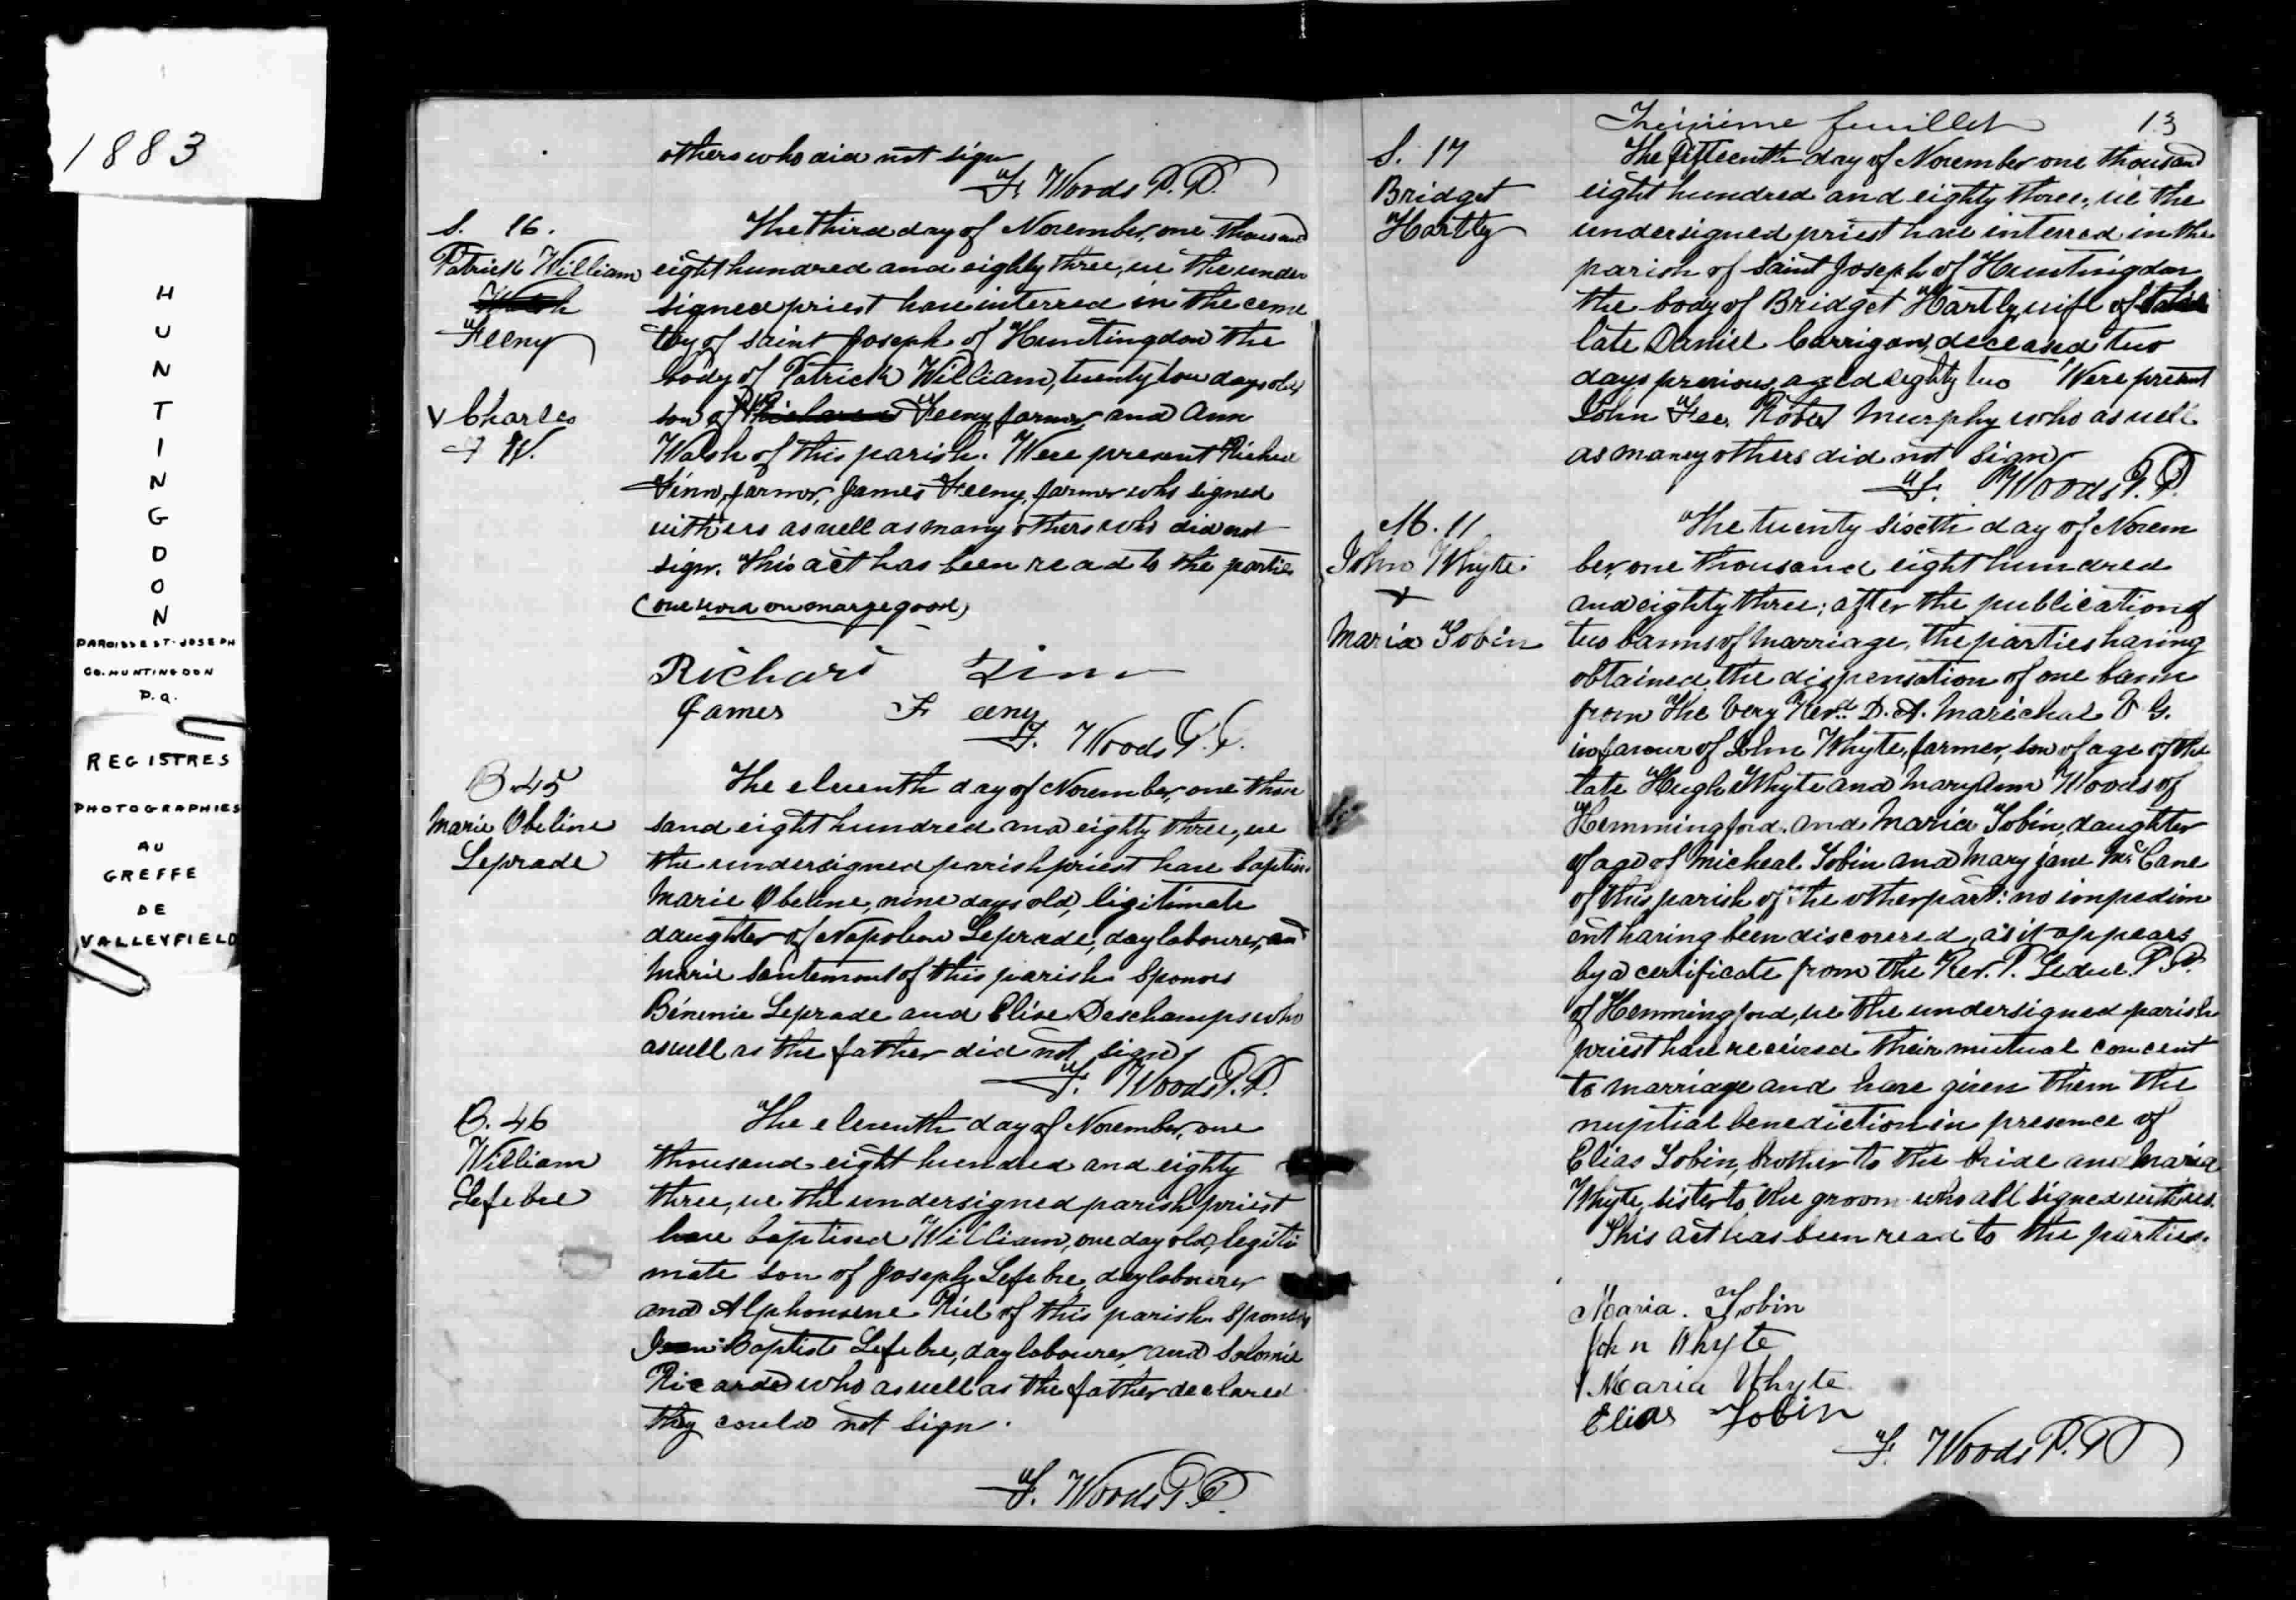 1883
HUNTINGDON
PAROISSE ST-JOSEPH
CO. HUNTINGDON
P.Q.
REGISTRES
PHOTOGRAPHIES
AU
GREFFE
DE
VALLEYFIELD
others who did not sign
F. Woods P.P.
S. 16.
Patrick William
Walsh
Feeny
V Charles
F W.
The third day of November, one thousand
eight hundred and eighty three, we the under
signed priest have interred in the ceme
tery of saint Joseph of Huntingdon the
body of Patrick William, twenty two days old,
son of Feeny, farmer, and Ann
Walsh of this parish. Were present Richard
Finn, farmer, James Feeny, farmer who signed
with us as well as many others who did not
sign. This act has been read to the parties
(one word on marge good)
Richard Finn
James Feeny
F. Woods P.P.
B. 45
Marie Obeline
Leprade
The eleventh day of November, one thou
sand eight hundred and eighty three, we
the undersigned parish priest have baptised
Marie Obeline, nine days old, legitimate
daughter of Napoleon Leprade, day labourer, and
Marie of this parish. Sponsors
Leprade and Elise Deschamps who
as well as the father did not sign
F. Woods P.P.
B. 46
William
Lefebre
The eleventh day of November, one
thousand eight hundred and eighty
three, we the undersigned parish priest
have baptised William, one day old, legiti
mate son of Joseph Lefebre, day labourer
and Alphonsene of this parish. Sponsors
Jean Baptiste Lefebre, day labourer, and Solomie
Ricarde who as well as the father declared
they could not sign.
F. Woods P.P.
feuillet 13
S. 17
Bridget
Hartly
The fifteenth day of November one thousand
eight hundred and eighty three, we the
undersigned priest have interred in the
parish of Saint Joseph of Huntingdon
the body of Bridget Hartly, wife of
late Daniel Carrigan, deceased two
days previous, aged eighty two Were present
John Fee, Robert Murphy who as well
as many others did not sign
F. Woods P.P.
M. 11
John Whyte
+
Maria Tobin
The twenty sixth day of Novem
ber, one thousand eight hundred
and eighty three; after the publication of
two banns of marriage, the parties having
obtained the dispensation of one bann
from The Very Revd. D. A. Marichal V. G.
in favour of John Whyte, farmer, son of age of the
late Hugh Whyte and Mary Ann Woods of
Hemmingford. and Maria Tobin, daughter
of age of Micheal Tobin and Mary jane McCane
of this parish of the other part: no impedim
ent having been discovered, as it appears
by a certificate from the Rev. P. Leduc P.P.
of Hemmingford, we the undersigned parish
priest have received their mutual concent
to marriage and have given them the
nuptial benediction in presence of
Elias Tobin, brother to the bride and Maria
Whyte, sister to the groom who all signed with us.
This act has been read to the parties.
Maria. Tobin
John Whyte
Maria Whyte
Elias Tobin
F. Woods P.P.